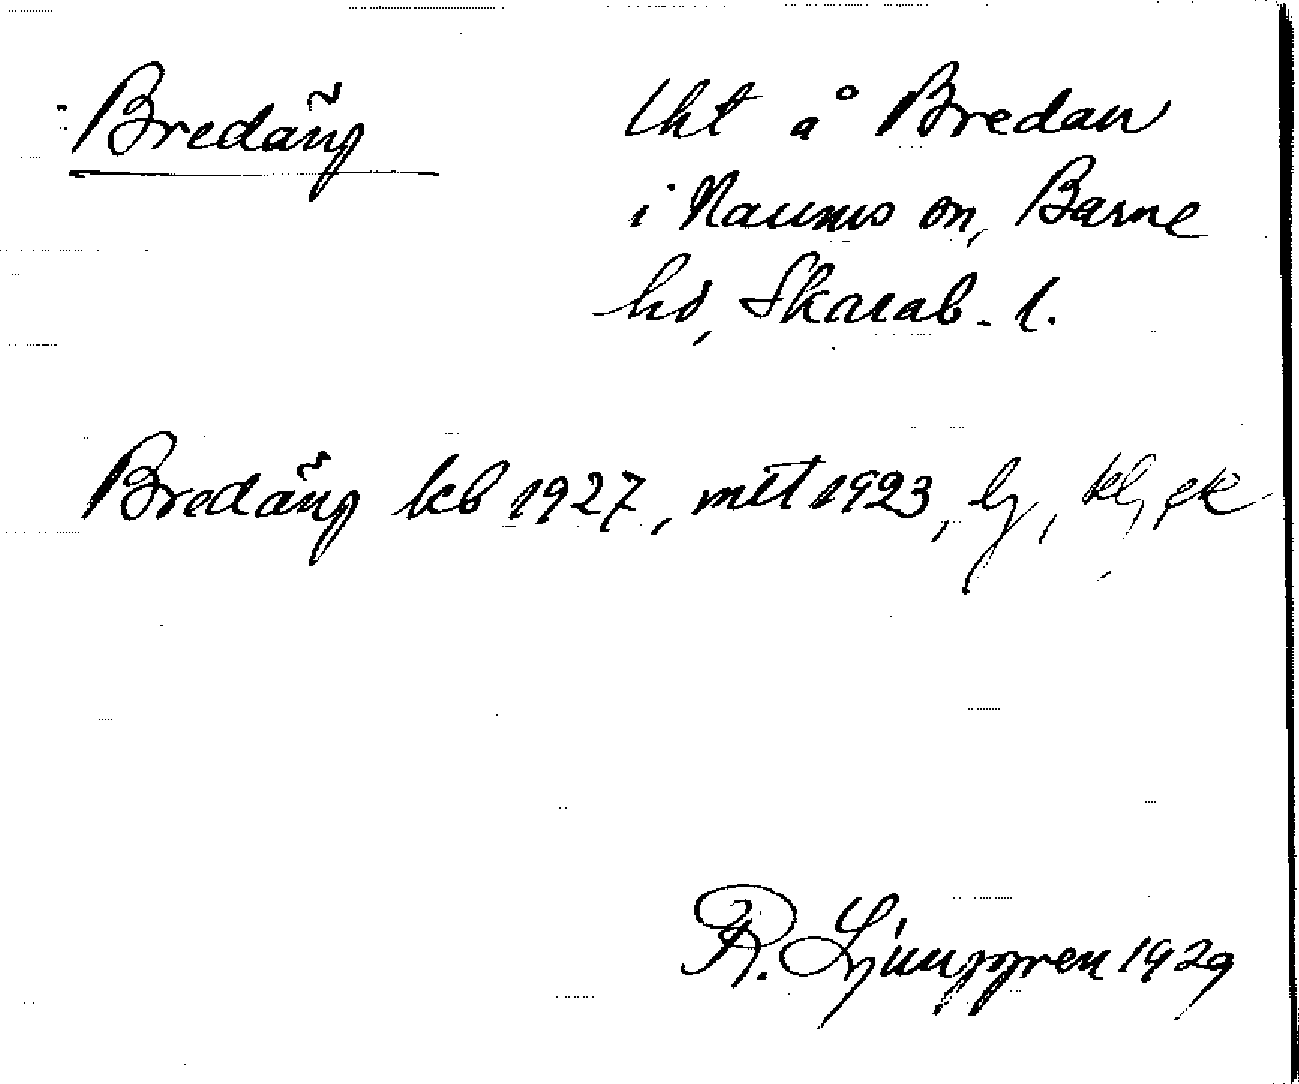 Bredäng
lht å Bredan
i Naums sn, Barne
hd, Skarab. l.
Bredäng kb 1927, mtl 1923, lj, kl, ek
R. Ljunggren 1929